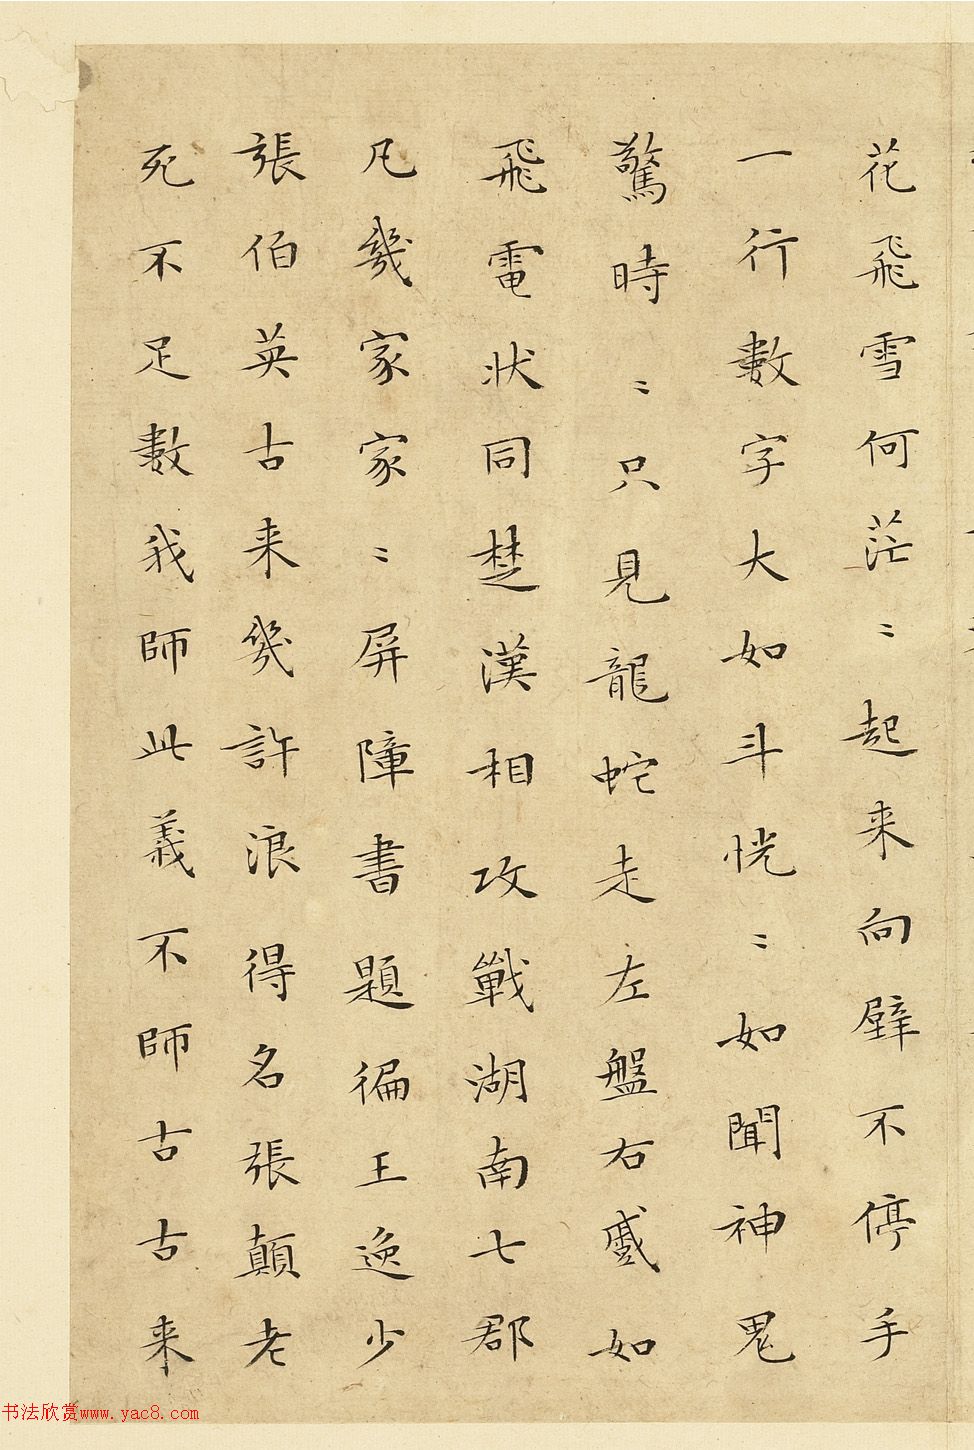 花飛雪何茫〻起来向壁不停手
一行數字大如斗恍〻如聞神鬼
驚時〻只見龍蛇走左盤右蹙如
飛電状同楚漢相攻戰湖南七郡
凡幾家家〻屏障書題徧王逸少
張伯英古来幾許浪得名張顛老
死不足數我師此義不師古古来
书法欣赏www.yac8.com